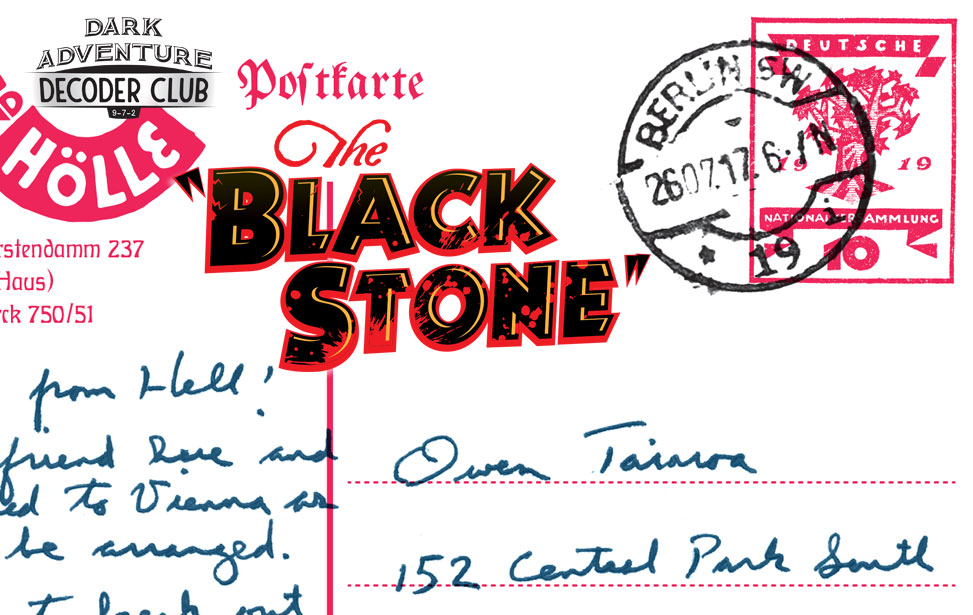 DARK
ADVENTURE
DECODER CLUB
9-7-2
HÖLLE
Poſtkarte
The
"BLACK
STONE"
DEUTSCHE
BERLIN SW
26.07.17. 6-7N
19 19
NATIONALVERSAMMLUNG
* 19 i
10
rstendamm 237
Haus)
rck 750/51
from Hell!
friend Rue and
ed to Vienna as
be arranged.
t break out
Owen Tairaroa
152 Central Park South